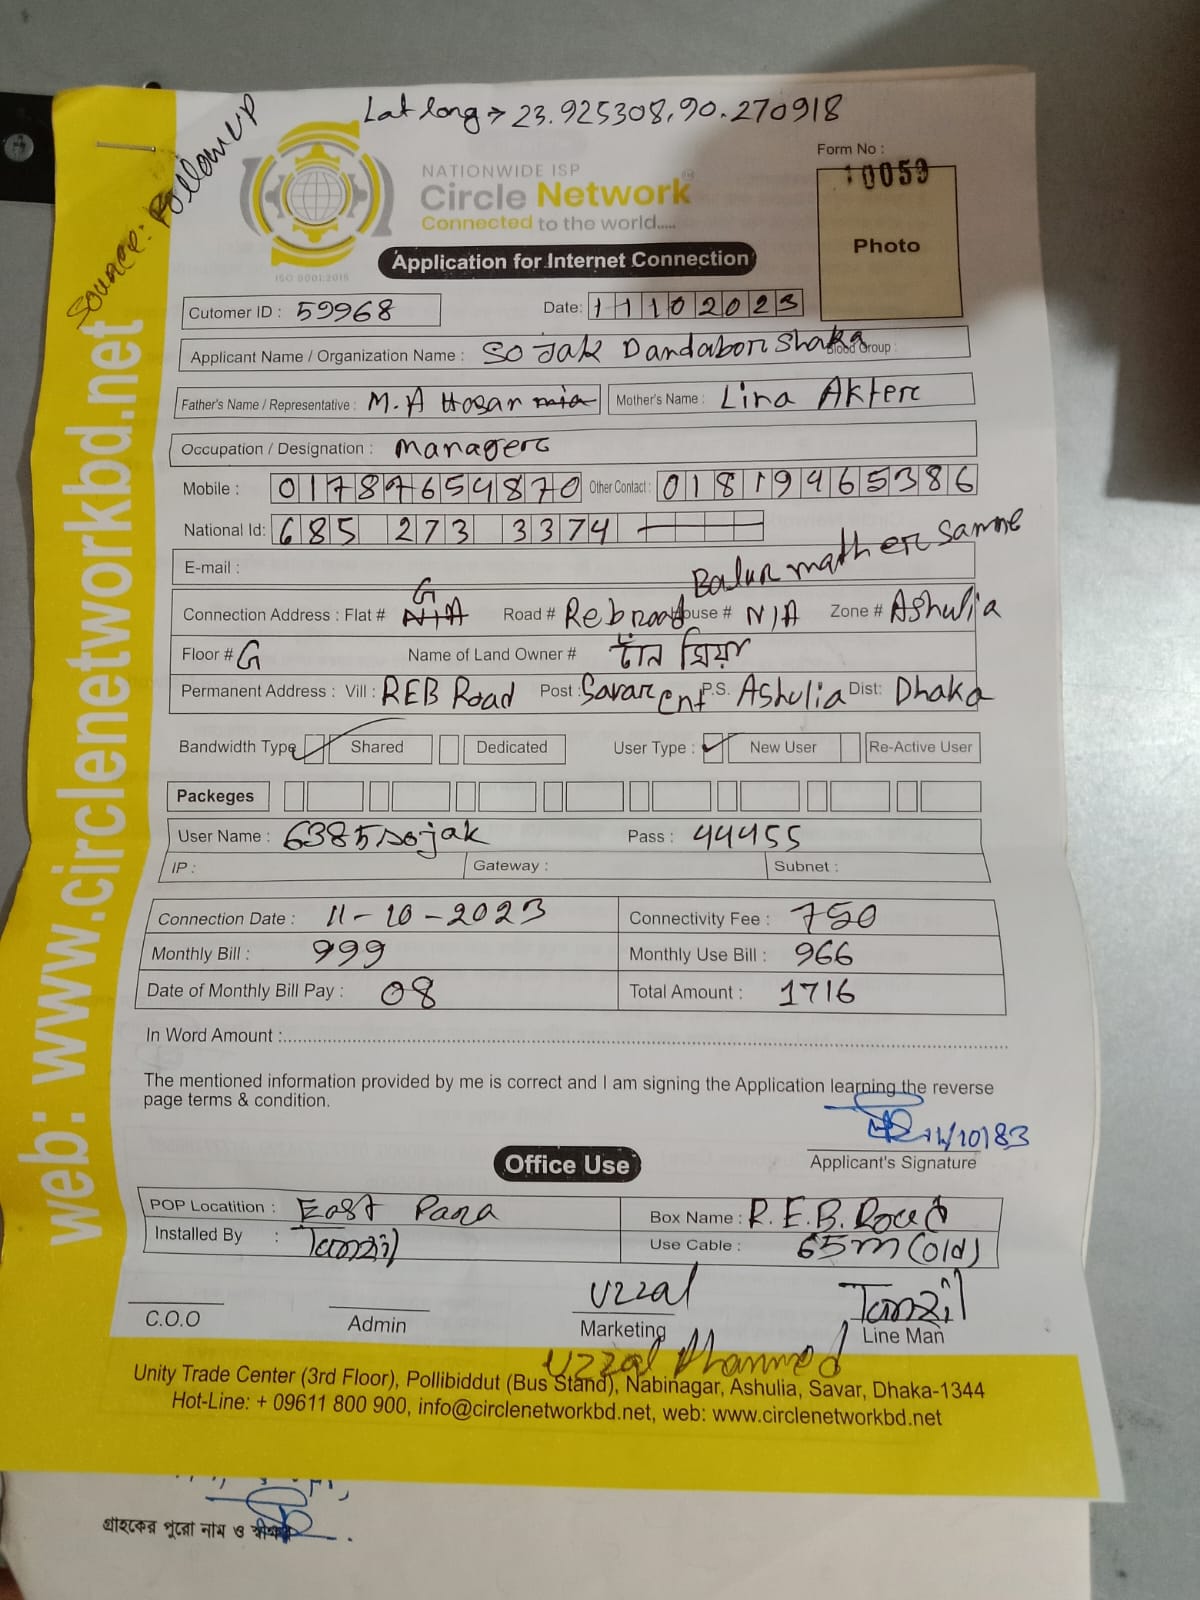 Lat long → 23.925308,90.270918
Source: Follow UP
NATIONWIDE ISP
Circle Network
Connected to the world.....
ISO 9001:2015
Form No :
10059
Photo
Application for Internet Connection
Cutomer ID : 59968
Date: 11102023
Applicant Name / Organization Name : SoJak Dandabor Shaka Blood Group :
Father's Name / Representative : M.A Hosan mia Mother's Name : Lina Akter
Occupation / Designation : Manager
Mobile : 01787654870 Other Contact : 01819465386
National Id: 685 273 3374
E-mail :
Balur mather samne
Connection Address : Flat # N/A G Road # Reb road House # N/A Zone # Ashulia
Floor # G Name of Land Owner # চাঁন মিয়া
Permanent Address : Vill : REB Road Post : Savar Cnt P.S. Ashulia Dist: Dhaka
Bandwidth Type ✓ Shared Dedicated User Type : ✓ New User Re-Active User
Packeges
User Name : 6385sojak Pass : 44455
IP : Gateway : Subnet :
Connection Date : 11-10-2023 Connectivity Fee : 750
Monthly Bill : 999 Monthly Use Bill : 966
Date of Monthly Bill Pay : 08 Total Amount : 1716
In Word Amount :
The mentioned information provided by me is correct and I am signing the Application learning the reverse
page terms & condition.
Applicant's Signature
Office Use
POP Locatition : East Para Box Name : R.E.B. Road
Installed By : Tanzil Use Cable : 65m (old)
Uzzal Tanzil
C.O.O Admin Marketing Line Man
Uzzal Ahammed
Unity Trade Center (3rd Floor), Pollibiddut (Bus Stand), Nabinagar, Ashulia, Savar, Dhaka-1344
Hot-Line: + 09611 800 900, info@circlenetworkbd.net, web: www.circlenetworkbd.net
web: www.circlenetworkbd.net
গ্রাহকের পুরো নাম ও